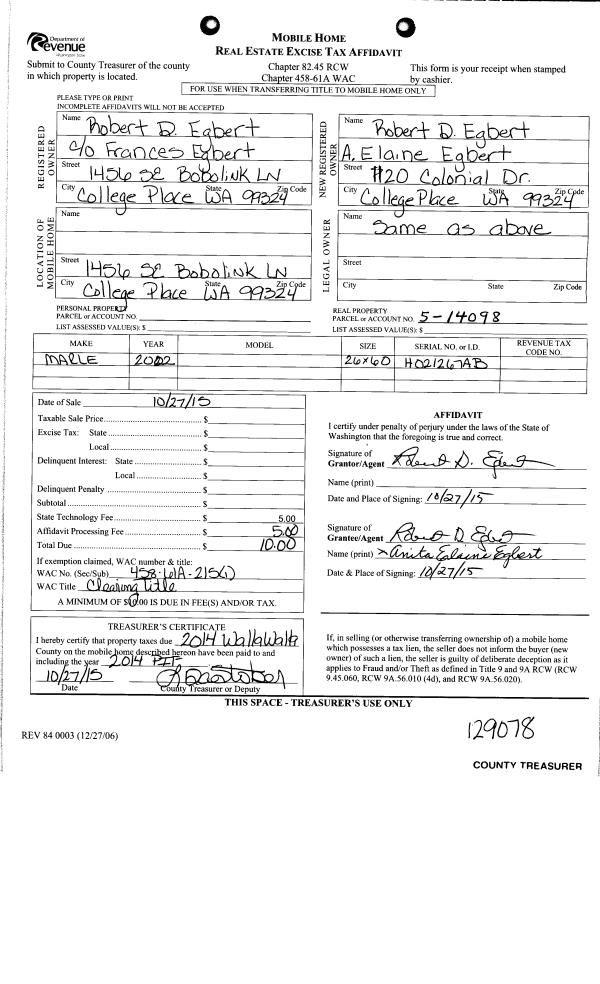 Department of
Revenue
Washington State
MOBILE HOME
REAL ESTATE EXCISE TAX AFFIDAVIT
Submit to County Treasurer of the county
in which property is located.
Chapter 82.45 RCW
Chapter 458-61A WAC
This form is your receipt when stamped
by cashier.
FOR USE WHEN TRANSFERRING TITLE TO MOBILE HOME ONLY
PLEASE TYPE OR PRINT
INCOMPLETE AFFIDAVITS WILL NOT BE ACCEPTED
REGISTERED OWNER
Name Robert D. Egbert
c/o Frances Egbert
Street 1456 SE Bobolink LN
City College Place State WA Zip Code 99324
NEW REGISTERED OWNER
Name Robert D. Egbert
A. Elaine Egbert
Street #20 Colonial Dr.
City College Place WA State 99324 Zip Code
LOCATION OF MOBILE HOME
Name
Street 1456 SE Bobolink LN
City College Place State WA 99324 Zip Code
LEGAL OWNER
Name Same as above
Street
City State Zip Code
PERSONAL PROPERTY
PARCEL or ACCOUNT NO.
LIST ASSESSED VALUE(S): $
REAL PROPERTY
PARCEL or ACCOUNT NO. 5-14098
LIST ASSESSED VALUE(S): $
MAKE YEAR MODEL SIZE SERIAL NO. or I.D. REVENUE TAX CODE NO.
MARLE 2002 26x60 H021267AB
Date of Sale 10/27/15
Taxable Sale Price $
Excise Tax: State $
Local $
Delinquent Interest: State $
Local $
Delinquent Penalty $
Subtotal $
State Technology Fee $ 5.00
Affidavit Processing Fee $ 5.00
Total Due $ 10.00
If exemption claimed, WAC number & title:
WAC No. (Sec/Sub) 458-61A-215(1)
WAC Title Clearing Title
A MINIMUM OF $10.00 IS DUE IN FEE(S) AND/OR TAX.
AFFIDAVIT
I certify under penalty of perjury under the laws of the State of
Washington that the foregoing is true and correct.
Signature of
Grantor/Agent Robert D. Egbert
Name (print)
Date and Place of Signing: 10/27/15
Signature of
Grantee/Agent Robert D Egbert
Name (print) x Anita Elaine Egbert
Date & Place of Signing: 10/27/15
TREASURER'S CERTIFICATE
I hereby certify that property taxes due 2014 Walla Walla
County on the mobile home described hereon have been paid to and
including the year 2014 PIF.
10/27/15
Date County Treasurer or Deputy
If, in selling (or otherwise transferring ownership of) a mobile home
which possesses a tax lien, the seller does not inform the buyer (new
owner) of such a lien, the seller is guilty of deliberate deception as it
applies to Fraud and/or Theft as defined in Title 9 and 9A RCW (RCW
9.45.060, RCW 9A.56.010 (4d), and RCW 9A.56.020).
THIS SPACE - TREASURER'S USE ONLY
REV 84 0003 (12/27/06)
129078
COUNTY TREASURER